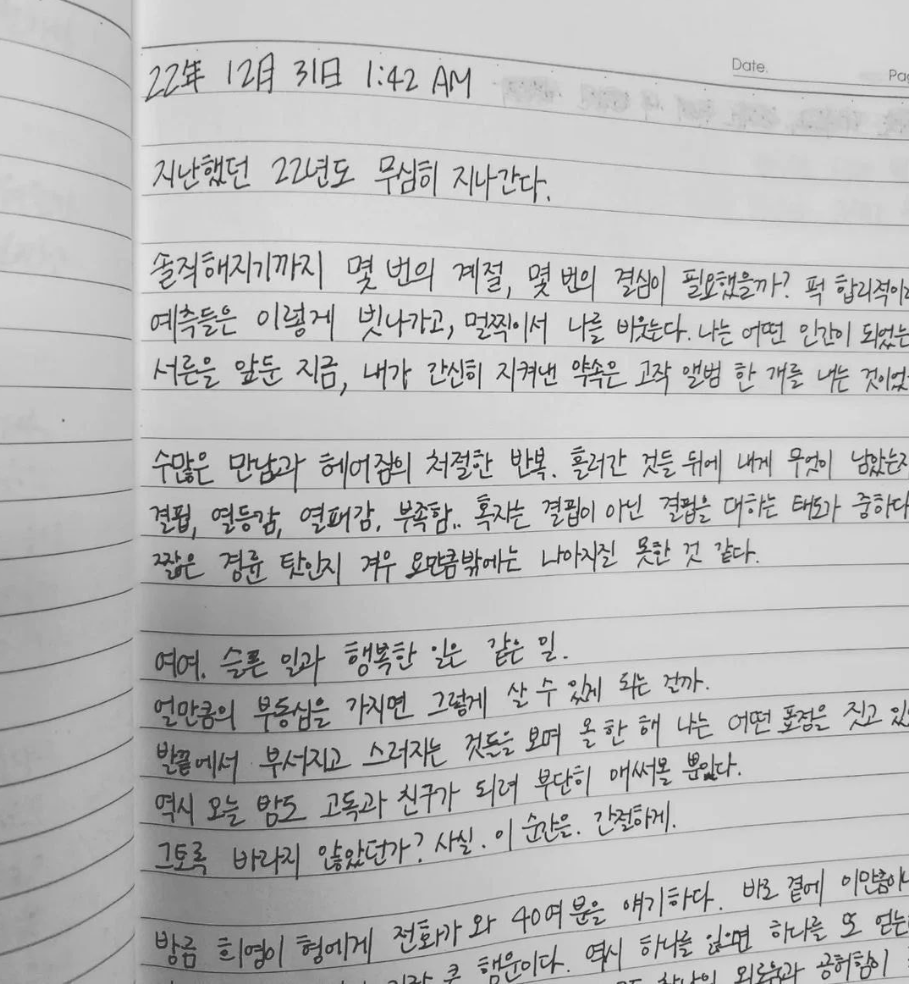 Date.
22年 12月 31日 1:42 AM
지난했던 22년도 무심히 지나간다.
솔직해지기까지 몇 번의 계절, 몇 번의 결심이 필요했을까? 퍽 합리적이라
예측들은 이렇게 빗나가고, 멀찍이서 나를 비웃는다. 나는 어떤 인간이 되었는
서른을 앞둔 지금, 내가 간신히 지켜낸 약속은 고작 앨범 한 개를 내는 것이었
수많은 만남과 헤어짐의 처절한 반복. 흘러간 것들 뒤에 내게 무엇이 남았는지
결핍, 열등감, 열패감, 부족함.. 혹자는 결핍이 아닌 결핍을 대하는 태도가 중하다
짧은 경륜 탓인지 겨우 요만큼밖에는 나아지질 못한 것 같다.
여여. 슬픈 일과 행복한 일은 같은 일.
얼만큼의 부동심을 가지면 그렇게 살 수 있게 되는 건가.
발끝에서 부서지고 스러지는 것들을 보며 올 한 해 나는 어떤 표정을 짓고 있
역시 오늘 밤도 고독과 친구가 되려 부단히 애써볼 뿐이다.
그토록 바라지 않았던가? 사실. 이 순간을. 간절하게.
방금 희영이 형에게 전화가 와 40여 분을 얘기하다. 바로 곁에 이만큼이나
큰 행운이다. 역시 하나를 잃으면 하나를 또 얻는
외로움과 공허함이